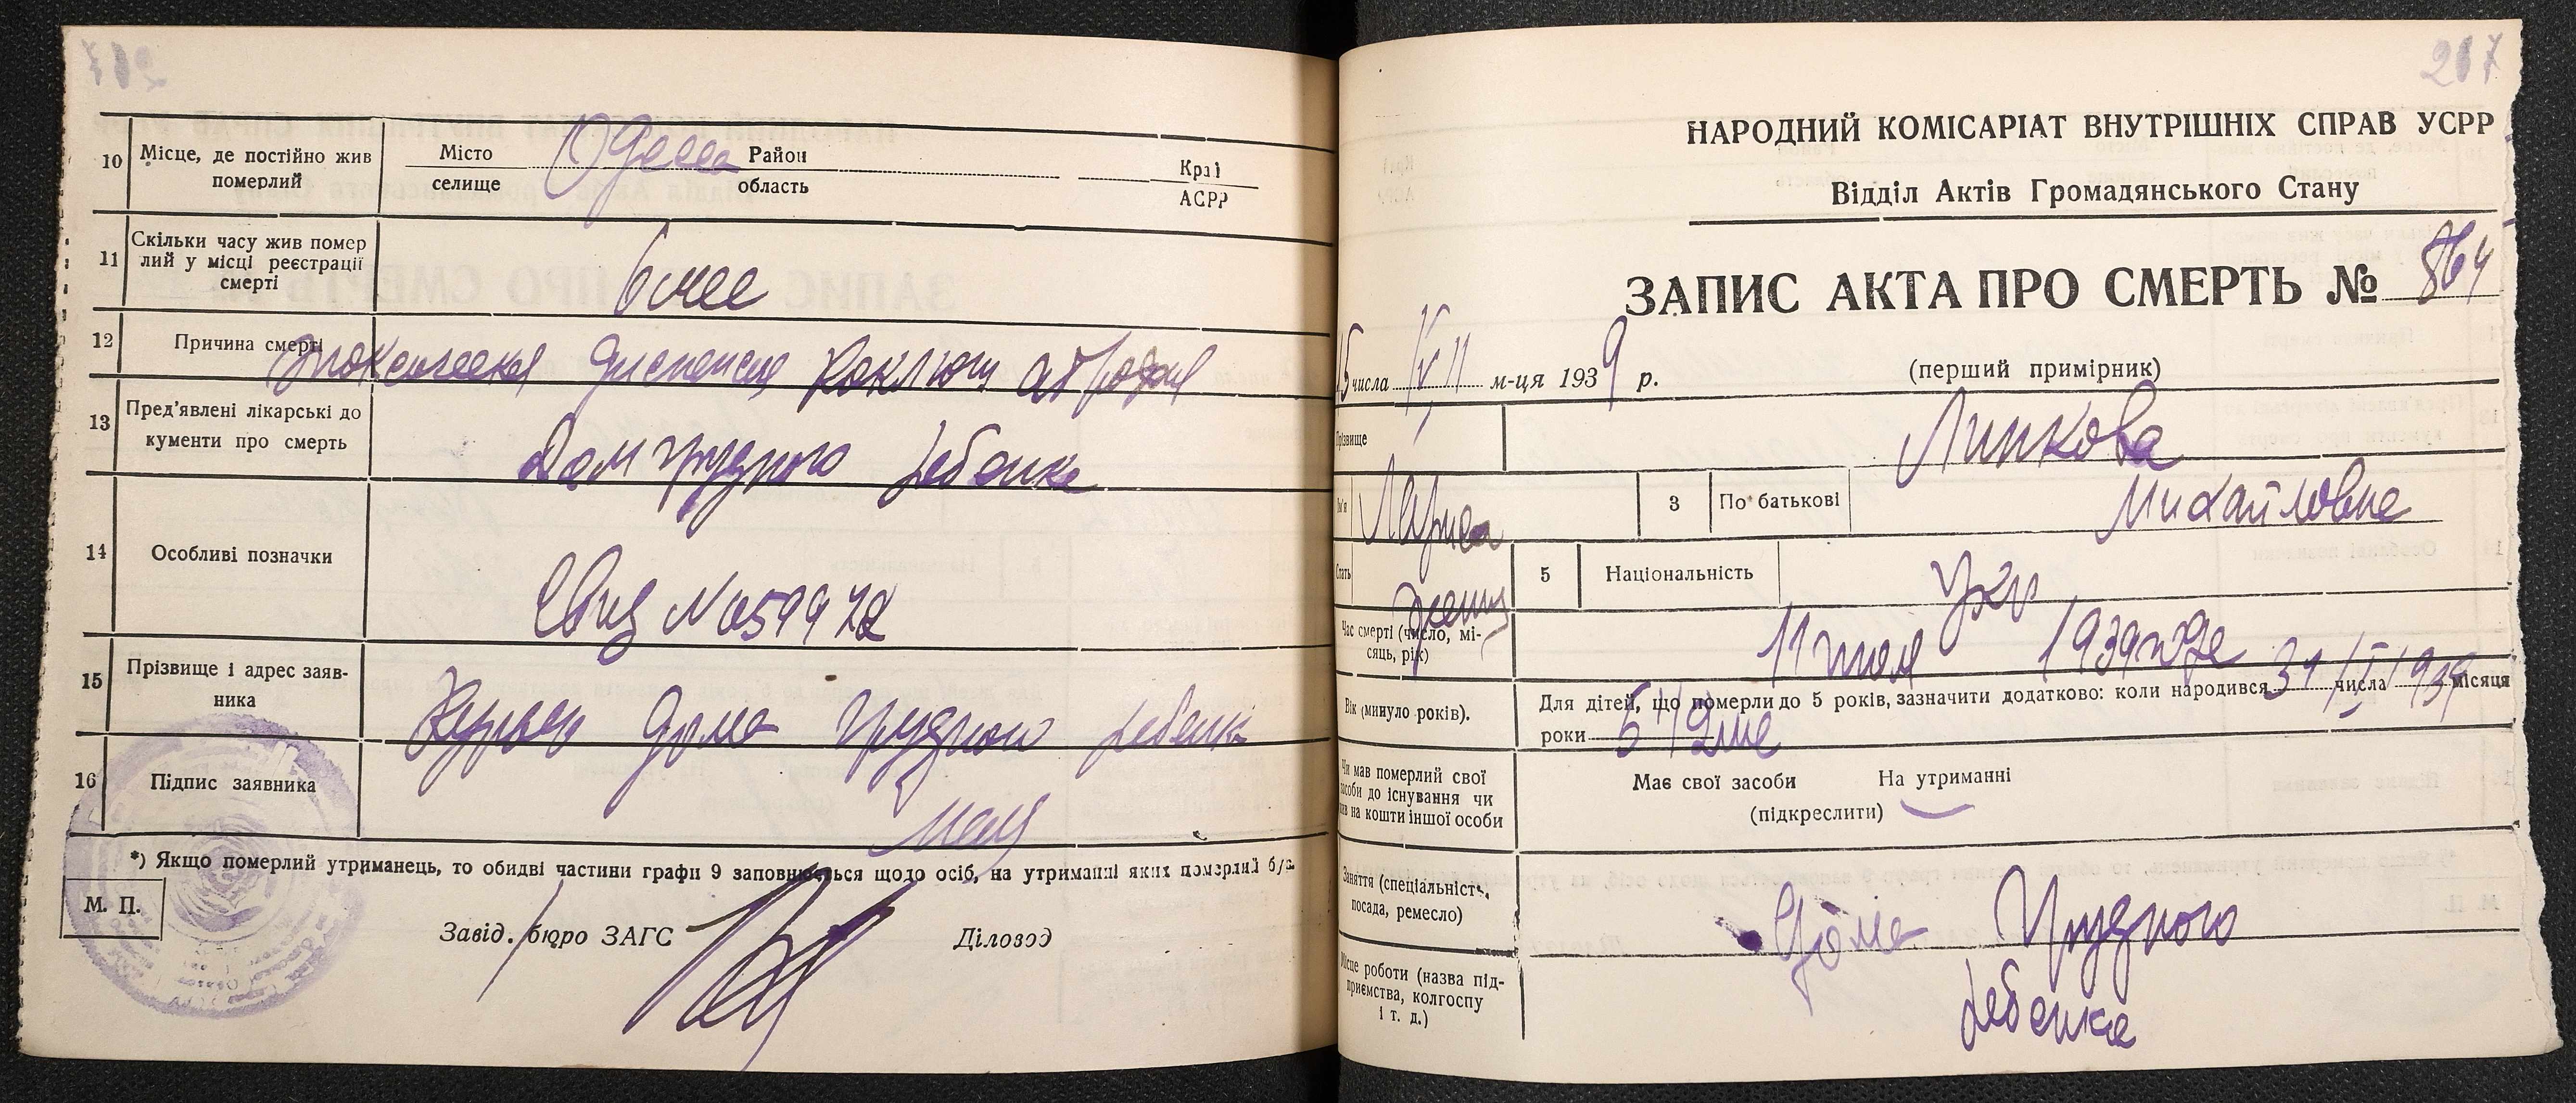 217
10 Місце, де постійно жив померлий
Місто селище Одесса Район область Краї АСРР
11 Скільки часу жив помер лий у місці реєстрації смерті
6 мес
12 Причина смерті
Токсическая диспепсия Коклюш атрофия
13 Пред'явлені лікарські до кументи про смерть
Дом грудного ребенка
14 Особливі позначки
Свид №
15 Прізвище і адрес заяв-ника
Курьер дома грудного ребенка
16 Підпис заявника
*) Якщо померлий утриманець, то обидві частини графи 9 заповнюється щодо осіб, на утриманні яких померлий був
М. П.
Завід. бюро ЗАГС Діловод
217
НАРОДНИЙ КОМІСАРІАТ ВНУТРІШНІХ СПРАВ УСРР
Відділ Актів Громадянського Стану
ЗАПИС АКТА ПРО СМЕРТЬ № 864
(перший примірник)
15 числа VII м-ця 1939 р.
Прізвище Липкова
Ім'я Лариса 3 По батькові Михайловна
Стать женщ 5 Національність Укр
Час смерті (число, мі-сяць, рік)
11 июля 1939 года
Вік (минуло років).
Для дітей, що померли до 5 років, зазначити додатково: коли народився 31/I 1939 числа місяця
роки 5 1/2 ме
Чи мав померлий свої
засоби до існування чи
жив на кошти іншої особи
Має свої засоби На утриманні
(підкреслити)
Заняття (спеціальність,
посада, ремесло)
Дома Грудного
ребенка
Місце роботи (назва під-
приємства, колгоспу
і т. д.)